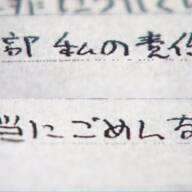 部私の責任
当にごめんな